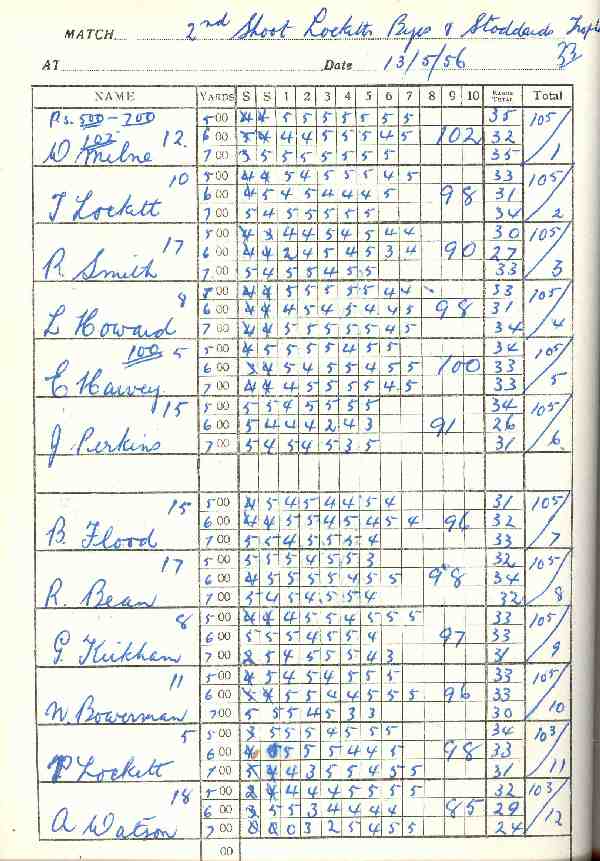 MATCH 2nd Shoot Locketts Byes & Stoddards
AT Date 13/5/56 33
NAME YARDS S S 1 2 3 4 5 6 7 8 9 10 Total
Ps. 500-700 500 4 4 5 5 5 5 5 5 5 35 105
102 12. 600 5 4 4 4 5 5 5 4 5 102 32
W Milne 700 3 5 5 5 5 5 5 5 35 1
10 500 4 4 5 4 5 5 5 4 5 33 105
600 4 5 4 5 4 4 4 5 98 31
T Lockett 700 5 4 5 5 5 5 5 34 2
17 500 4 3 4 4 5 4 5 4 4 30 105
600 4 4 2 4 5 4 5 3 4 90 27
R. Smith 700 5 4 5 5 4 5 5 33 3
8 500 4 4 5 5 5 5 5 4 4 33 105
600 4 4 4 5 4 5 4 4 5 98 31
L Howard 700 4 4 5 5 5 5 5 4 5 34 4
100 5 500 4 5 5 5 5 4 5 5 34 105
600 3 4 5 4 5 5 4 5 5 100 33
C Harvey 700 4 4 4 5 5 5 5 4 5 33 5
15 500 5 5 4 5 5 5 5 34 105
600 5 4 4 4 2 4 3 91 26
J Perkins 700 5 4 5 4 5 3 5 31 6
15 500 4 5 4 5 4 4 5 4 31 105
600 4 4 5 5 4 5 4 5 4 96 32
B. Flood 700 5 5 4 5 5 5 4 33 7
17 500 5 5 5 4 5 5 3 32 105
600 4 5 5 5 5 4 5 5 98 34
R. Bean 700 5 4 5 4 5 5 4 32 8
8 500 4 4 4 5 5 4 5 5 5 33 105
600 5 5 5 4 5 5 4 97 33
G. Kirkham 700 2 5 4 5 5 5 4 3 31 9
11 500 4 5 4 5 4 5 5 5 33 105
600 5 4 5 5 4 4 5 5 5 96 33
W. Bowerman 700 5 5 5 4 5 3 3 30 10
5 500 3 5 5 5 4 5 5 5 34 103
600 4 5 5 5 5 4 4 5 98 33
P Lockett 700 5 4 4 3 5 5 4 5 5 31 11
18 500 2 4 4 4 5 5 5 5 32 103
600 3 5 5 3 4 4 4 4 85 29
A Watson 700 0 0 0 3 2 5 4 5 5 24 12
00